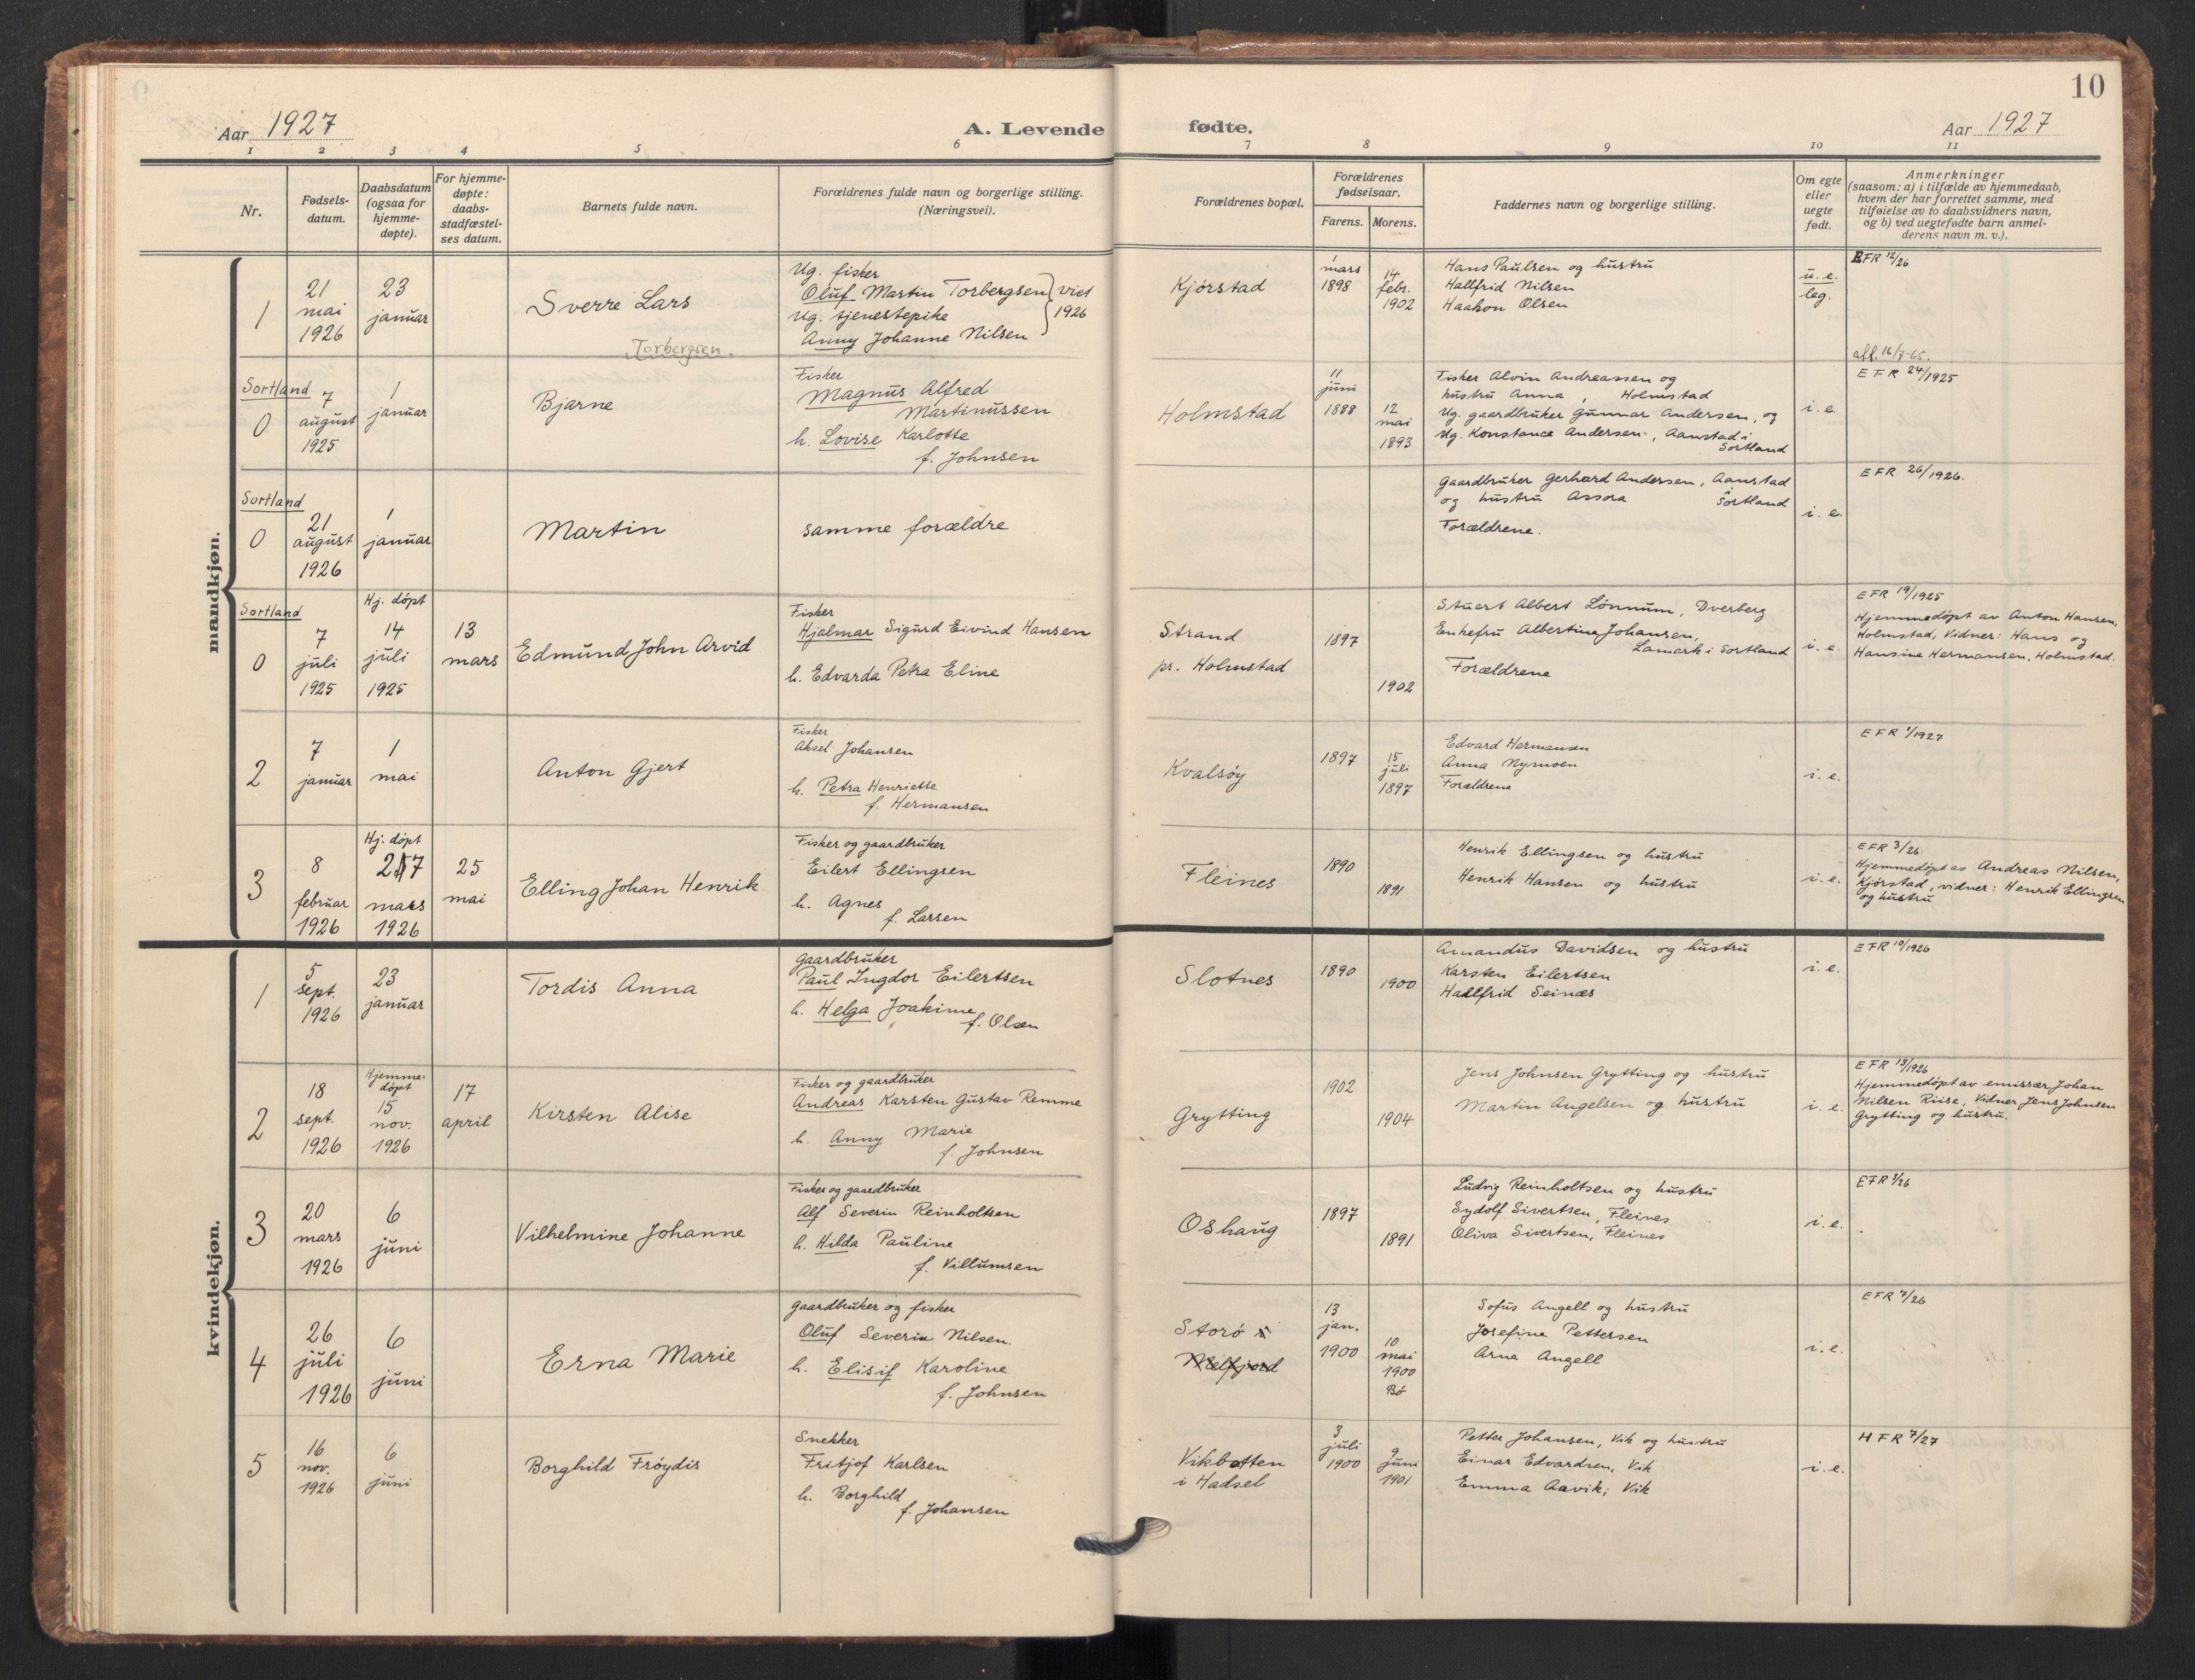 10
Aar 1927
A. Levende fødte.
Aar 1927
1 2 3 4 5 6 7 8 9 10 11
Nr.
Fødsels-
datum.
Daabsdatum
(ogsaa for
hjemme-
døpte).
For hjemme-
døpte:
daabs-
stadfæstel-
ses datum.
Barnets fulde navn.
Forældrenes fulde navn og borgerlige stilling.
(Næringsvei).
Forældrenes bopæl.
Forældrenes
fødselsaar.
Farens. Morens.
Faddernes navn og borgerlige stilling.
Om egte
eller
uegte
født.
Anmerkninger
(saasom: a) i tilfælde av hjemmedaab,
hvem der har forrettet samme, med
tilføielse av to daabsvidners navn,
og b) ved uegtefødte barn anmel-
derens navn m. v.).
mandkjøn.
1
21
mai
1926
23
januar
Sverre Lars
Torbergsen.
Ug. fisker
Oluf Martin Torbergsen
Ug. tjenestepike
Anny Johanne Nilsen
viet
1926
Kjørstad
1
mars
1898
14
febr.
1902
Hans Paulsen og hustru
Hallfrid Nilsen
Haakon Olsen
u. e.
leg.
EFR 12/26
aff. 16/7-65.
Sortland
0
7
august
1925
1
januar
Bjarne
Fisker
Magnus Alfred
Martinussen
h. Lovise Karlotte
f. Johnsen
Holmstad
11
juni
1888
12
mai
1893
Fisker Alvin Andreassen og
hustru Anna, Holmstad
Ug. gaardbruker Gunnar Andersen, og
Ug. Konstance Andersen, Aanstad i
Sortland
i. e.
EFR 24/1925
Sortland
0
21
august
1926
1
januar
Martin
samme forældre
Gaardbruker Gerhard Andersen, Aanstad
og hustru Assora i Sortland
Forældrene.
i. e.
EFR 26/1926.
Sortland
0
7
juli
1925
Hj. døpt
14
juli
1925
13
mars
Edmund John Arvid
Fisker
Hjalmar Sigurd Eivind Hansen
h. Edvarda Petra Eline
Strand
pr. Holmstad
1897
1902
Stuert Albert Lønnum, Dverberg
Enkefru Albertina Johansen,
Lamark i Sortland
Forældrene
i. e.
EFR 19/1925
Hjemmedøpt av Anton Hansen,
Holmstad, Vidner: Hans og
Hansine Hermansen, Holmstad.
2
7
januar
1
mai
Anton Gjert
Fisker
Aksel Johansen
h. Petra Henriette
f. Hermansen
Kvalsøy
1897
15
juli
1897
Edvard Hermansen
Anna Nymoen
Forældrene
i. e.
EFR 1/1927
3
8
februar
1926
Hj. døpt
27
mars
1926
25
mai
Elling Johan Henrik
Fisker og gaardbruker
Eilert Ellingsen
h. Agnes
f. Larsen
Fleines
1890
1891
Henrik Ellingsen og hustru
Henrik Hansen og hustru
i. e.
EFR 3/26
Hjemmedøpt av Andreas Nilsen,
Kjørstad, vidner: Henrik Ellingsen
og hustru
kvindekjøn.
1
5
sept.
1926
23
januar
Tordis Anna
Gaardbruker
Paul Ingdor Eilertsen
h. Helga Joakime
f. Olsen
Slotnes
1890
1900
Amandus Davidsen og hustru
Karsten Eilertsen
Hallfrid Seinæs
i. e.
EFR 10/1926
2
18
sept.
1926
Hjemme-
døpt
15
nov.
1926
17
april
Kirsten Alise
Fisker og gaardbruker
Andreas Karsten Gustav Remme
h. Anny Marie
f. Johnsen
Grytting
1902
1904
Jens Johnsen Grytting og hustru
Martin Angelsen og hustru
i. e.
EFR 13/1926
Hjemmedøpt av emissær Johan
Nilsen Riise, Vidner Jens Johnsen
Grytting og hustru.
3
20
mars
1926
6
juni
Vilhelmine Johanne
Fisker og gaardbruker
Alf Severin Reinholtsen
h. Hilda Pauline
f. Villumsen
Oshaug
1897
1891
Ludvig Reinholtsen og hustru
Sydolf Sivertsen, Fleines
Oliva Sivertsen, Fleines
i. e.
EFR 3/26
4
26
juli
1926
6
juni
Erna Marie
Gaardbruker og fisker
Oluf Severin Nilsen.
h. Elisif Karoline
f. Johnsen
Storø
Melfjord
13
jan.
1900
10
mai
1900
Bø
Sofus Angell og hustru
Josefine Pettersen
Arne Angell
i. e.
EFR 7/26
5
16
nov.
1926
6
juni
Borghild Frøydis
Snekker
Fritjof Karlsen
h. Borghild
f. Johansen
Vikbotten
i Hadsel
3
juli
1900
9
juni
1901
Petter Johansen, Vik og hustru
Einar Edvardsen, Vik
Emma Aavik, Vik
i. e.
HFR 7/27